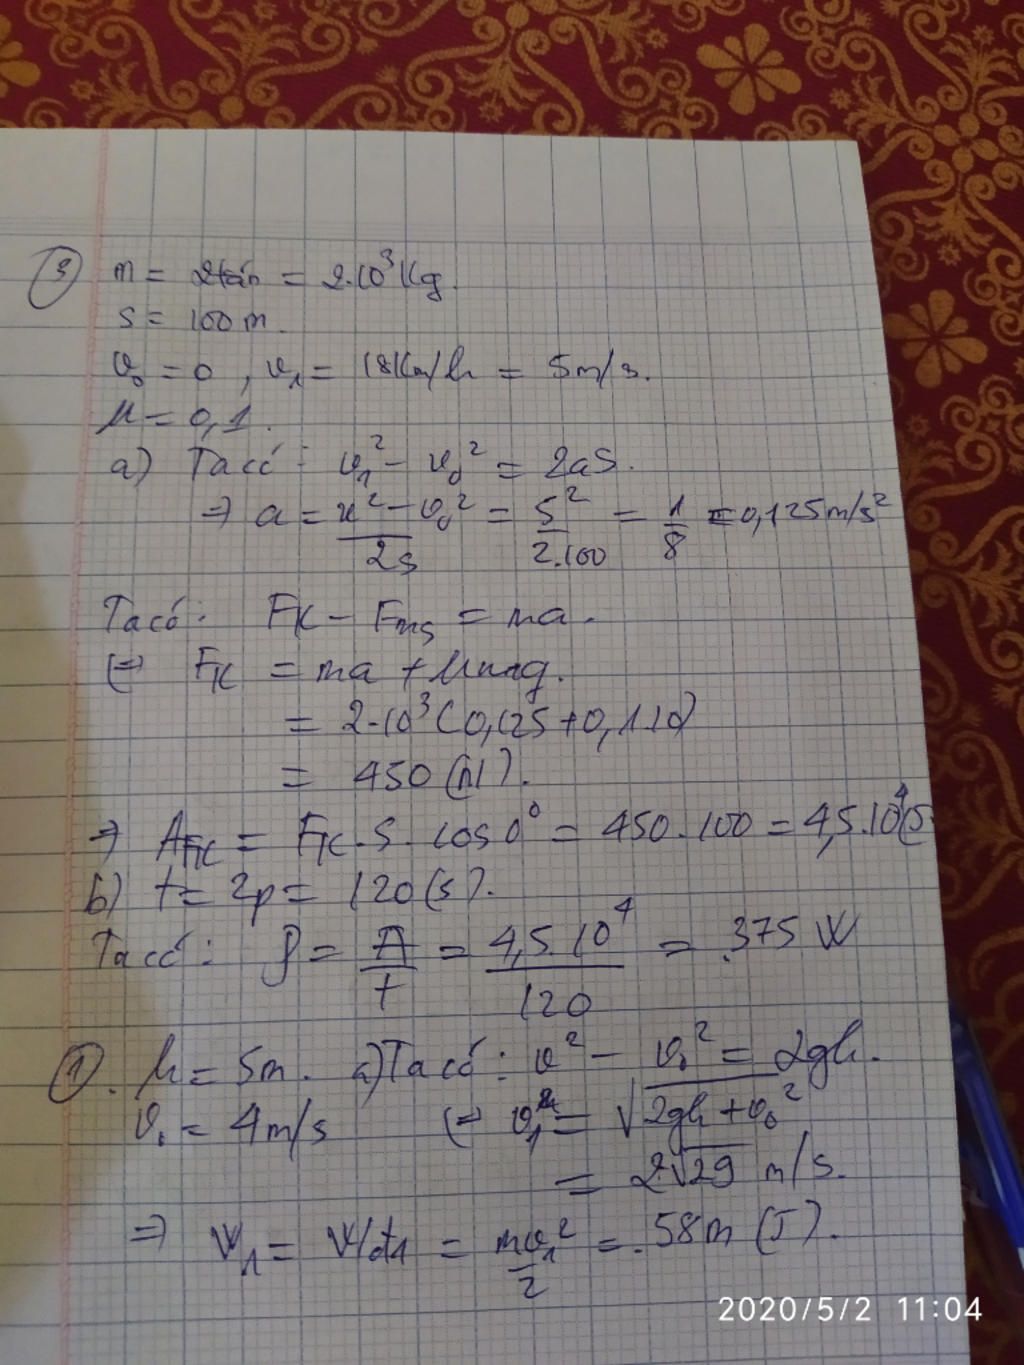 ③ m = 2tấn = 2.10³Kg.
s = 100m.
v₀ = 0 , v₁ = 18Km/h = 5m/s.
μ = 0,1.
a) Ta có: v₁² - v₀² = 2aS.
⇒ a = v² - v₀² / 2s = 5² / 2.100 = 1/8 = 0,125m/s²
Ta có: FK - Fms = ma.
⇔ FK = ma + μmg.
= 2.10³(0,125+0,1.10)
= 450 (N).
⇒ AFK = FK.S.cos0⁰ = 450.100 = 4,5.10⁴(J
b) t = 2p = 120(s).
Ta có: P = A/t = 4,5.10⁴ / 120 = 375 W
①. h = 5m. a) Ta có: v² - v₀² = 2gh.
v₀ = 4m/s ⇔ v₁ = √2gh + v₀²
= 2√29 m/s.
⇒ W₁ = Wđ1 = mv₁²/2 = 58m (J).
2020/5/2 11:04